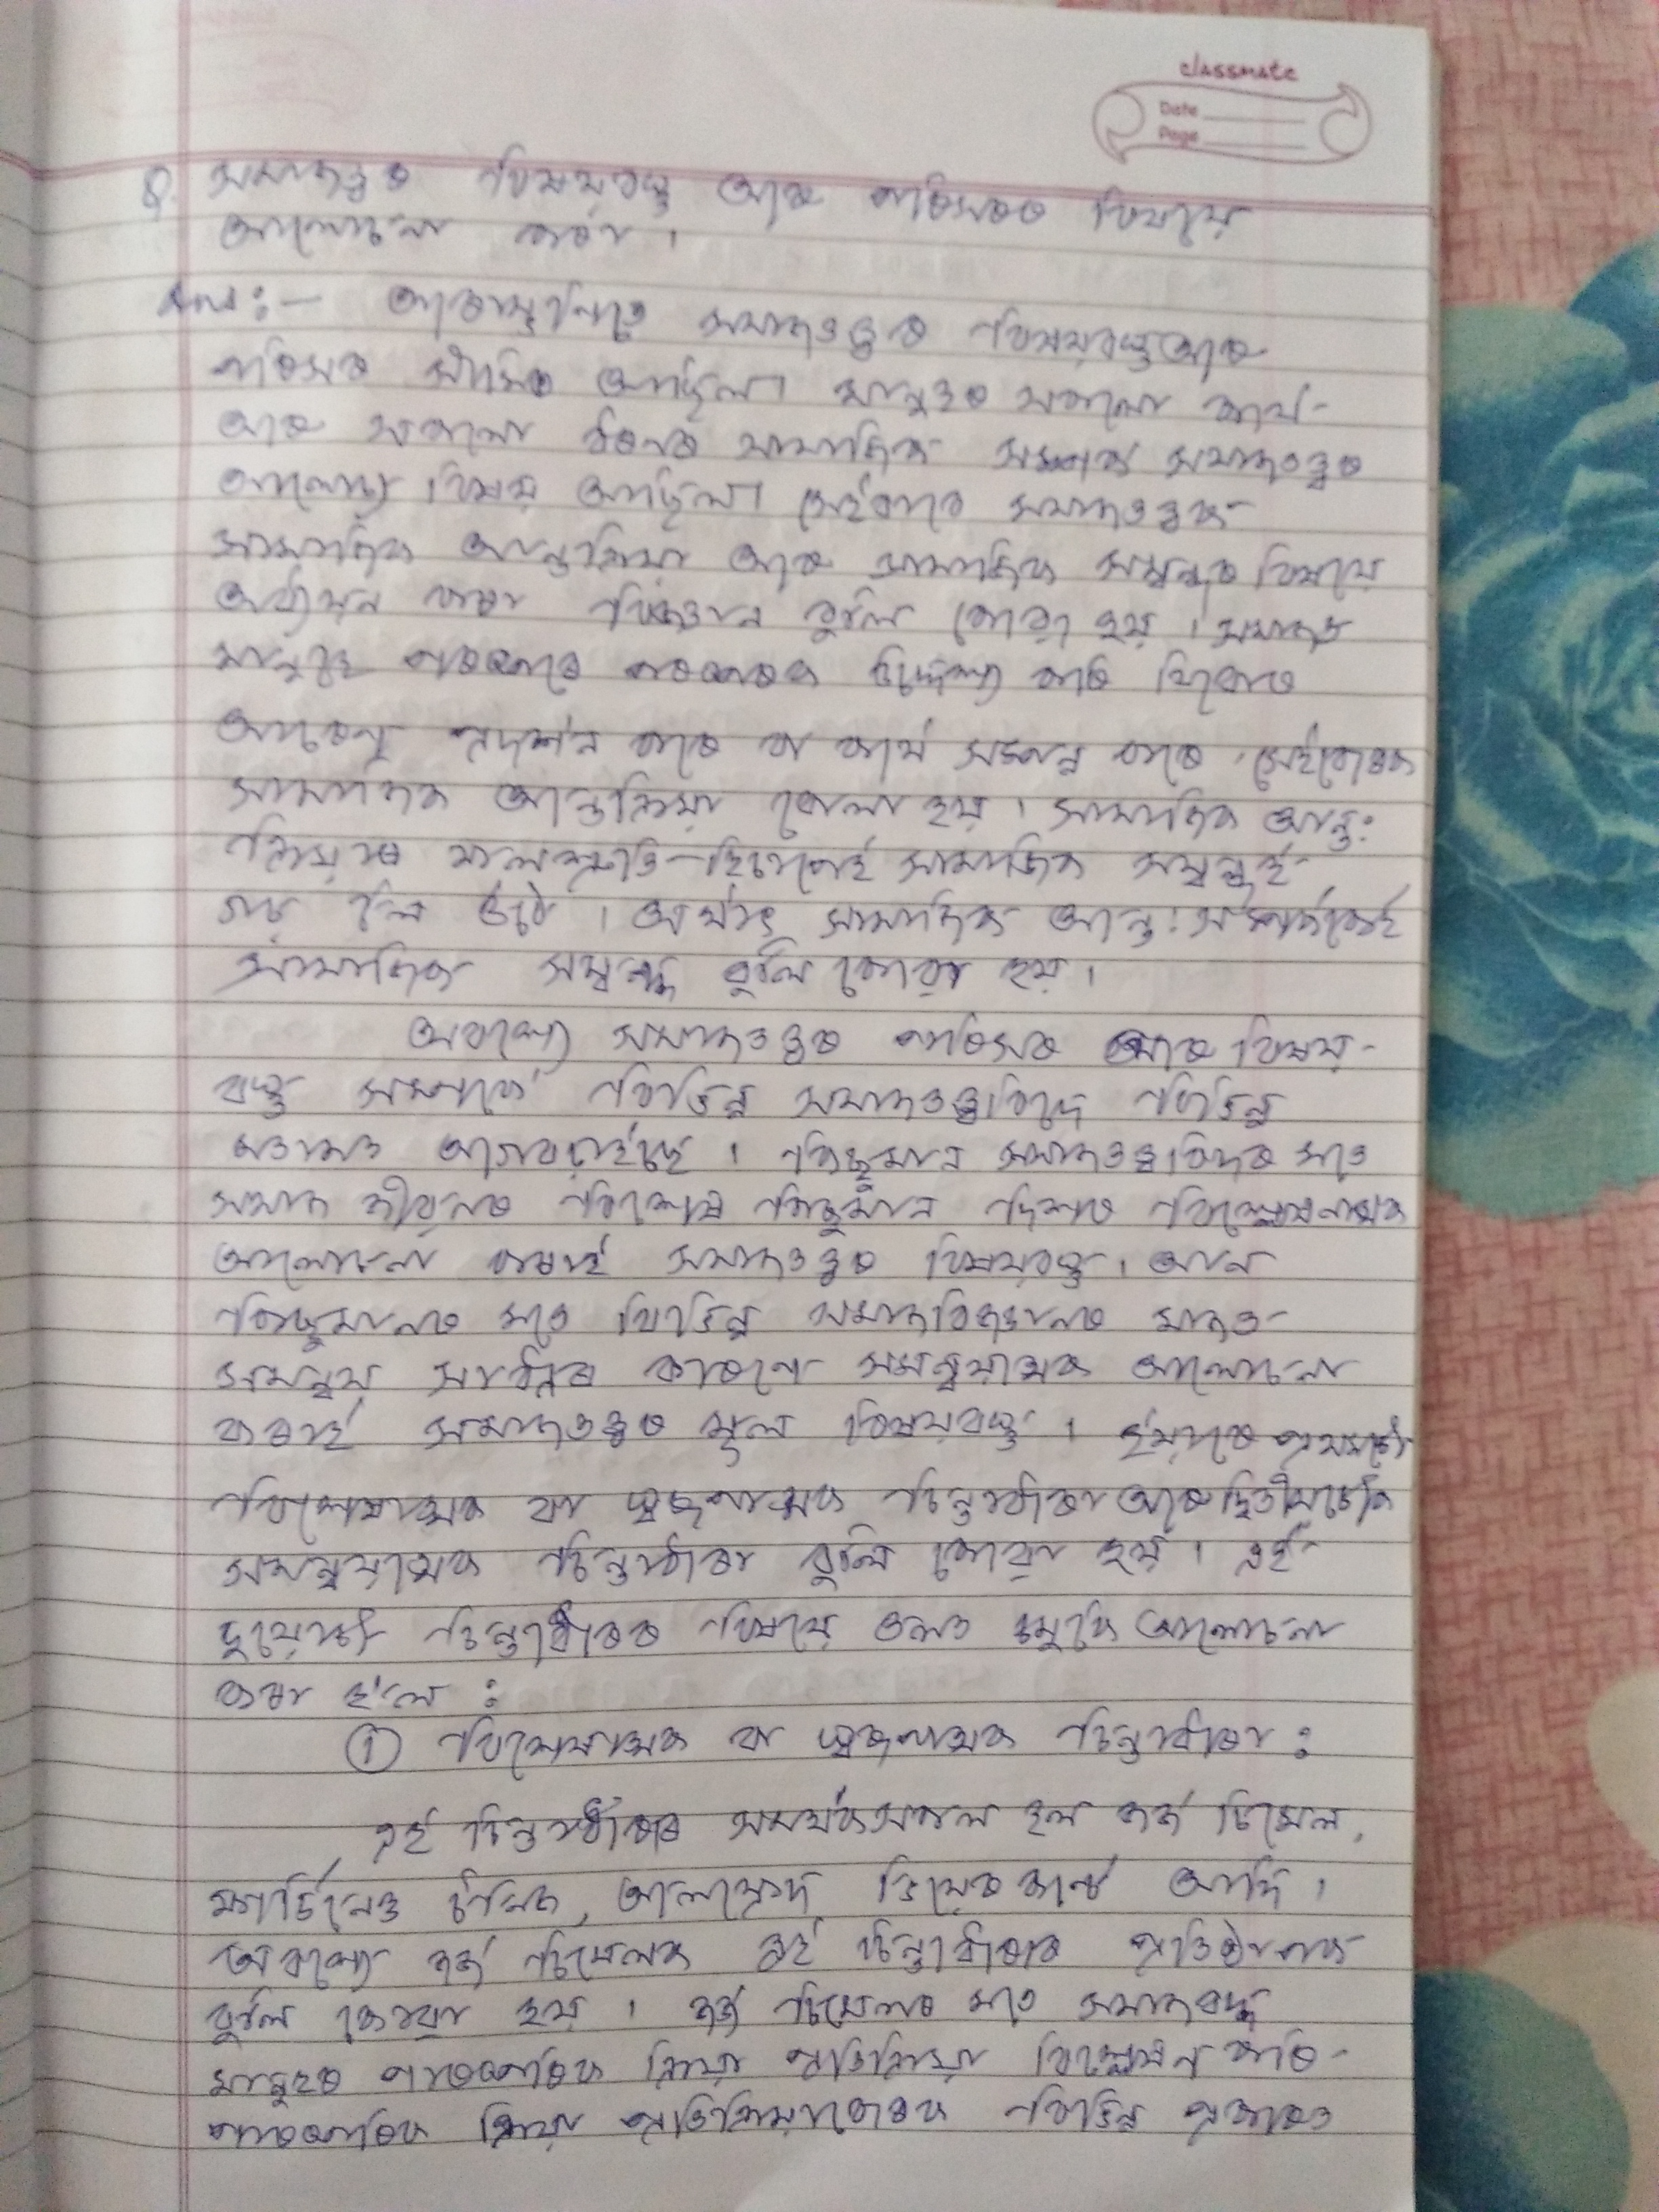 classmate
Date
Page
Q. সমাজতত্ত্বৰ বিষয়বস্তু আৰু পৰিসৰৰ বিষয়ে
আলোচনা কৰা ।
Ans:— আৰম্ভণিতে সমাজতত্ত্বৰ বিষয়বস্তু আৰু
পৰিসৰ সীমিত আছিল। মানুহৰ সকলো কাৰ্য
আৰু সকলো ধৰণৰ সামাজিক সম্পৰ্ক সমাজতত্ত্বৰ
আলোচ্য বিষয় আছিল। সেইবাবে সমাজতত্ত্বক
সামাজিক আন্তক্ৰিয়া আৰু সামাজিক সম্বন্ধৰ বিষয়ে
অধ্যয়ন কৰা বিজ্ঞান বুলি কোৱা হয় । সমাজত
মানুহে পৰস্পৰে পৰস্পৰক উদ্দেশ্য কৰি যিবোৰ
আচৰণ প্ৰদৰ্শন কৰে বা কাৰ্য সম্পন্ন কৰে, সেইবোৰক
সামাজিক আন্তক্ৰিয়া বোলা হয় । সামাজিক আন্তঃ
ক্ৰিয়াৰ ফলশ্ৰুতি হিচাপেই সামাজিক সম্বন্ধই
গঢ় লৈ উঠে । অৰ্থাৎ সামাজিক আন্তঃসম্পৰ্ককেই
সামাজিক সম্বন্ধ বুলি কোৱা হয় ।
অৱশ্যে সমাজতত্ত্বৰ পৰিসৰ আৰু বিষয়-
বস্তু সম্পৰ্কে বিভিন্ন সমাজতত্ত্ববিদে বিভিন্ন
মতামত আগবঢ়াইছে । কিছুমান সমাজতত্ত্ববিদৰ মতে
সমাজ জীৱনৰ বিশেষ কিছুমান দিশৰ বিশ্লেষণাত্মক
আলোচনা কৰাই সমাজতত্ত্বৰ বিষয়বস্তু । আন
কিছুমানৰ মতে বিভিন্ন সমাজবিজ্ঞানৰ মাজত
সমন্বয় সাধনৰ কাৰণে সমন্বয়াত্মক আলোচনা
কৰাই সমাজতত্ত্বৰ মূল বিষয়বস্তু । ইয়াৰে প্ৰথমটো
বিশেষাত্মক বা স্বৰূপাত্মক চিন্তাধাৰা আৰু দ্বিতীয়টোক
সমন্বয়াত্মক চিন্তাধাৰা বুলি কোৱা হয় । এই
দুয়োটা চিন্তাধাৰাৰ বিষয়ে তলত চমুকৈ আলোচনা
কৰা হ'ল :
① বিশেষাত্মক বা স্বৰূপাত্মক চিন্তাধাৰা :
এই চিন্তাধাৰাৰ সমৰ্থকসকল হ'ল জৰ্জ চিমেল,
ফাৰ্ডিনেণ্ড টনিজ, আলফ্ৰেদ ভিয়েৰকান্ট আদি ।
অৱশ্যে জৰ্জ চিমেলক এই চিন্তাধাৰাৰ প্ৰতিষ্ঠাপক
বুলি কোৱা হয় । জৰ্জ চিমেলৰ মতে সমাজবদ্ধ
মানুহৰ পাৰস্পৰিক ক্ৰিয়া প্ৰতিক্ৰিয়া বিশ্লেষণ কৰি
পাৰস্পৰিক ক্ৰিয়া প্ৰতিক্ৰিয়াবোৰক বিভিন্ন প্ৰকাৰত